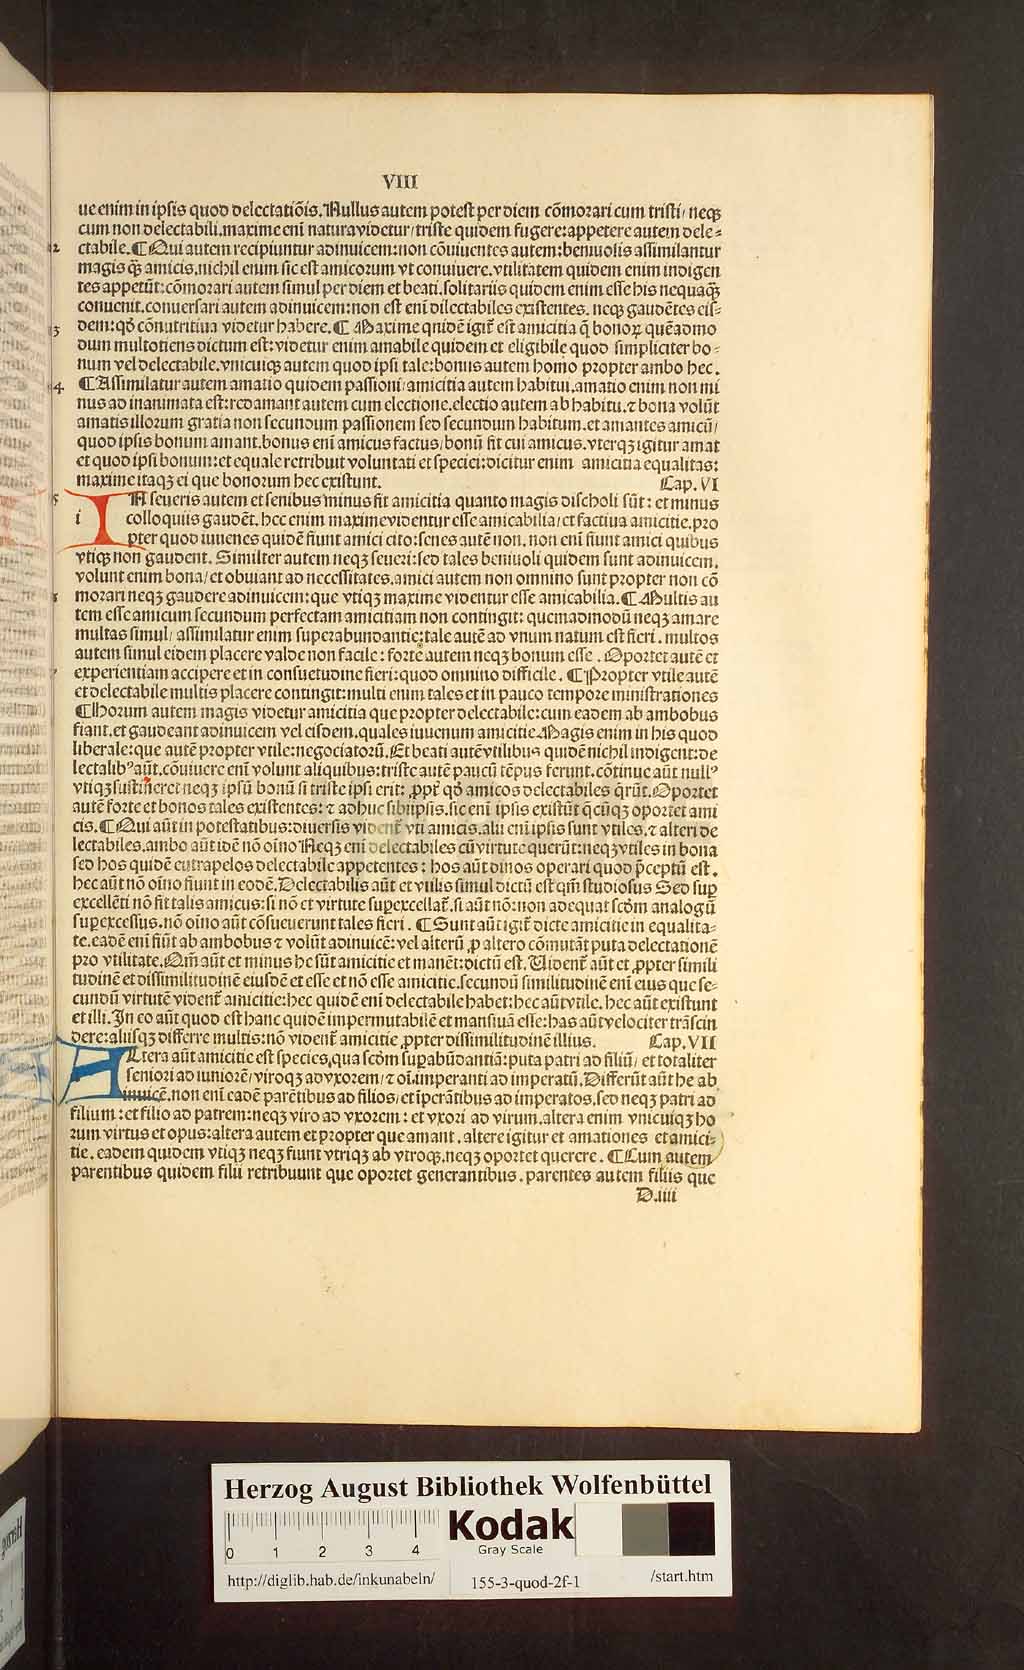 VIII
ue enim in ipsis quod delectatiōis. Nullus autem potest per diem cōmorari cum tristi/ neqꝫ
cum non delectabili. maxime eni natura videtur/ triste quidem fugere: appetere autem dele⸗
2 ctabile. ¶ Qui autem recipiuntur adinuicem: non cōuiuentes autem: beniuolis assimilantur
magis qꝫ̃ amicis. nichil enim sic est amicorum vt conuiuere. vtilitatem quidem enim indigen
tes appetūt: cōmorari autem simul per diem et beati. solitariis quidem enim esse his nequaqꝫ̃
conuenit. conuersari autem adinuicem: non est eni dilectabiles existentes. neqꝫ gaudētes eis⸗
3 dem: qđ cōnutritiua videtur habere. ¶ Maxime quidē igit̃ est amicitia q̄ bonoꝝ quēadmo
dum multotiens dictum est: videtur enim amabile quidem et eligibile quod simpliciter bo⸗
num vel delectabile. vnicuiqꝫ autem quod ipsi tale: bonus autem homo propter ambo hec.
4. ¶ Assimilatur autem amatio quidem passioni/ amicitia autem habitui. amatio enim non mi
nus ad inanimata est: redamant autem cum electione. electio autem ab habitu. ⁊ bona volūt
amatis illorum gratia non secundum passionem sed secundum habitum. et amantes amicū/
quod ipsis bonum amant. bonus eni amicus factus/ bonū fit cui amicus. vterqꝫ igitur amat
et quod ipsi bonum: et equale retribuit voluntati et speciei: dicitur enim amicitia equalitas:
maxime itaqꝫ ei que bonorum hec existunt. Cap. VI
5 IN seueris autem et senibus minus fit amicitia quanto magis discholi sūt: et minus
i colloquiis gaudēt. hec enim maxime videntur esse amicabilia/ et factiua amicitie. pro
pter quod iuuenes quidē fiunt amici cito: senes autē non. non eni fiunt amici quibus
vtiqꝫ non gaudent. Similter autem neqꝫ seueri: sed tales beniuoli quidem sunt adinuicem.
volunt enim bona/ et obuiant ad necessitates. amici autem non omnino sunt propter non cō
6 morari neqꝫ gaudere adinuicem: que vtiqꝫ maxime videntur esse amicabilia. ¶ Multis au
tem esse amicum secundum perfectam amicitiam non contingit: quemadmodū neqꝫ amare
multas simul/ assimilatur enim superabundantie: tale autē ad vnum natum est fieri. multos
autem simul eidem placere valde non facile: forte autem neqꝫ bonum esse. Oportet autē et
7 experientiam accipere et in consuetudine fieri: quod omnino difficile. ¶ Propter vtile autē
et delectabile multis placere contingit: multi enim tales et in pauco tempore ministrationes
¶ Horum autem magis videtur amicitia que propter delectabile: cum eadem ab ambobus
fiant. et gaudeant adinuicem vel eisdem. quales iuuenum amicitie Magis enim in his quod
liberale: que autē propter vtile: negociatorū. Et beati autē vtilibus quidē nichil indigent: de
lectalibꝰ aūt. cōuiuere eni volunt aliquibus: triste autē paucū tēpus ferunt. cōtinue aūt nullꝰ
vtiqꝫ sustineret neqꝫ ipsū bonū si triste ipsi erit: ꝓpt̃ qđ amicos delectabiles q̃rūt. Oportet
autē forte et bonos tales existentes: ⁊ adhuc sibiipsis. sic eni ipsis existūt q̄cūqꝫ oportet ami
cis. ¶ Qui aūt in potestatibus: diuersis vident̃ vti amicis. alii eni ipsis sunt vtiles. ⁊ alteri de
lectabiles. ambo aūt idē nō oino Neqꝫ eni delectabiles cū virtute querūt: neqꝫ vtiles in bona
sed hos quidē eutrapelos delectabile appetentes: hos aūt dinos operari quod p̄ceptū est.
hec aūt nō oino fiunt in eodē. Delectabilis aūt et vtilis simul dictū est qm̃ studiosus Sed suꝑ
excellēti nō fit talis amicus: si nō et virtute suꝑexcellat̃. si aūt nō: non adequat scđm analogū
suꝑexcessus. nō oino aūt cōsueuerunt tales fieri. ¶ Sunt aūt igit̃ dicte amicitie in equalita⸗
te. eadē eni fiūt ab ambobus ⁊ volūt adinuicē: vel alterū ꝓ altero cōmutāt puta delectationē
pro vtilitate. Qm̃ aūt et minus he sūt amicitie et manēt: dictū est. Vident̃ aūt et ꝓpter simili
tudinē et dissimilitudinē eiusdē et esse et nō esse amicitie. secundū similitudinē eni eius que se⸗
cundū virtutē vident̃ amicitie: hec quidē eni delectabile habet: hec aūt vtile. hec aūt existunt
et illi. In eo aūt quod est hanc quidē impermutabilē et mansiuā esse: has aūt velociter trāscin
dere: aliisqꝫ differre multis: nō vident̃ amicitie ꝓpter dissimilitudinē illius. Cap. VII
ALtera aūt amicitie est species. qua scđm suꝑabūdantiā: puta patri ad filiū/ et totaliter
seniori ad iuniorē/ viroqꝫ ad vxorem/ ⁊ oi. imperanti ad imperatū. Differūt aūt he ab
inuicē. non eni eadē parētibus ad filios/ et iperātibus ad imperatos. sed neqꝫ patri ad
filium: et filio ad patrem: neqꝫ viro ad vxorem: et vxori ad virum. altera enim vnicuiqꝫ ho
rum virtus et opus: altera autem et propter que amant. altere igitur et amationes et amici⸗
tie. eadem quidem vtiqꝫ neqꝫ fiunt vtriqꝫ ab vtroqꝫ. neqꝫ oportet querere. ¶ Cum autem
parentibus quidem filii retribuunt que oportet generantibus. parentes autem filiis que
D.iiii
Herzog August Bibliothek Wolfenbüttel
0 1 2 3 4
Kodak
Gray Scale
http://diglib.hab.de/inkunabeln/ 155-3-quod-2f-1 /start.htm